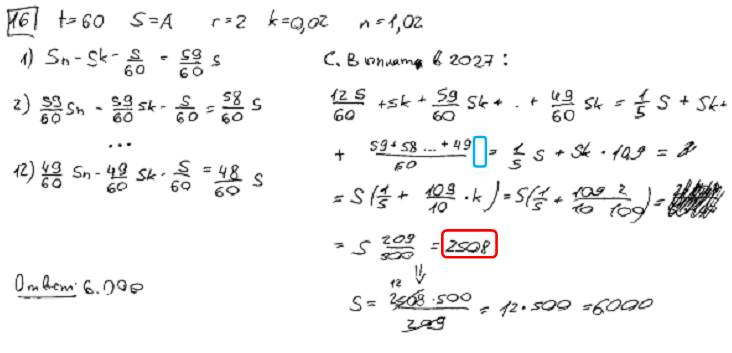 16 t=60 S=A r=2 k=0,02 n=1,02
1) Sn - Sk - S/60 = 59/60 S
2) 59/60 Sn - 59/60 Sk - S/60 = 58/60 S
...
12) 49/60 Sn - 49/60 Sk - S/60 = 48/60 S
Ответ: 6.000
С. Выплат в 2027:
12S/60 + Sk + 59/60 Sk + .. + 49/60 Sk = 1/5 S + Sk +
+ 59+58 ... +49/60 = 1/5 S + Sk · 10,9 =
= S(1/5 + 109/10 · k) = S(1/5 + 109/10 2/100) =
= S 209/500 = 2508
⇓
S = 2508·500/209 = 12·500 = 6000
12